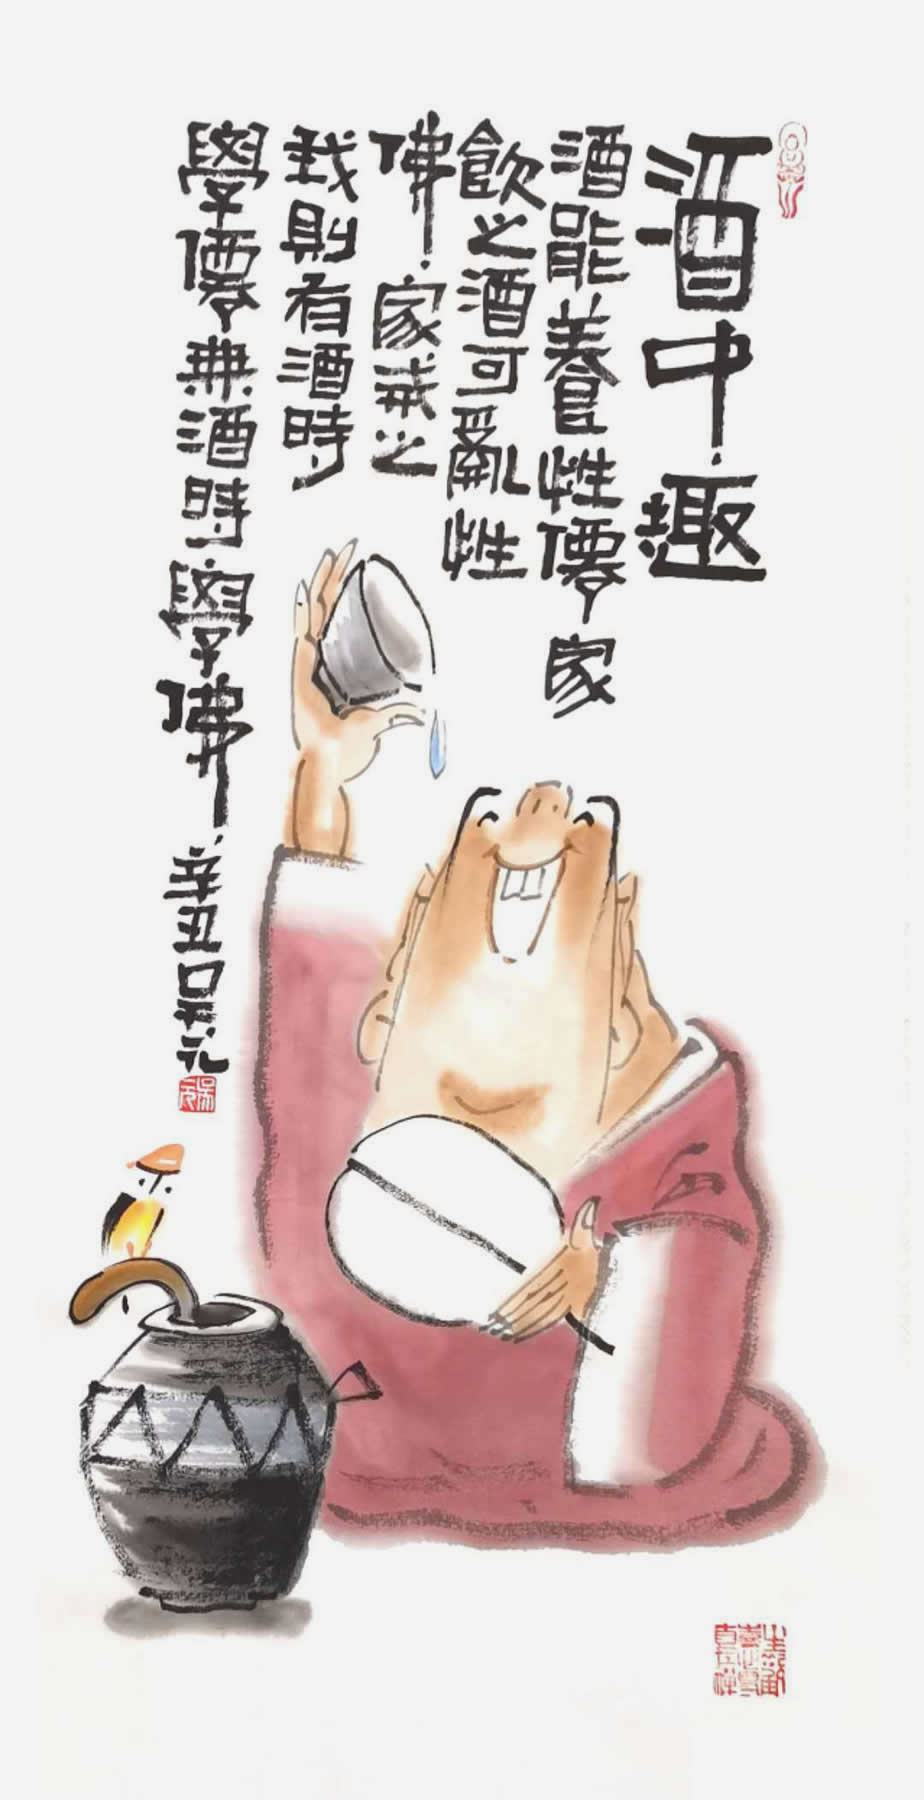 酒中趣
酒能養性僊家
飲之酒可亂性
佛家戒之
我則有酒時
學僊無酒時學佛
辛丑吴元